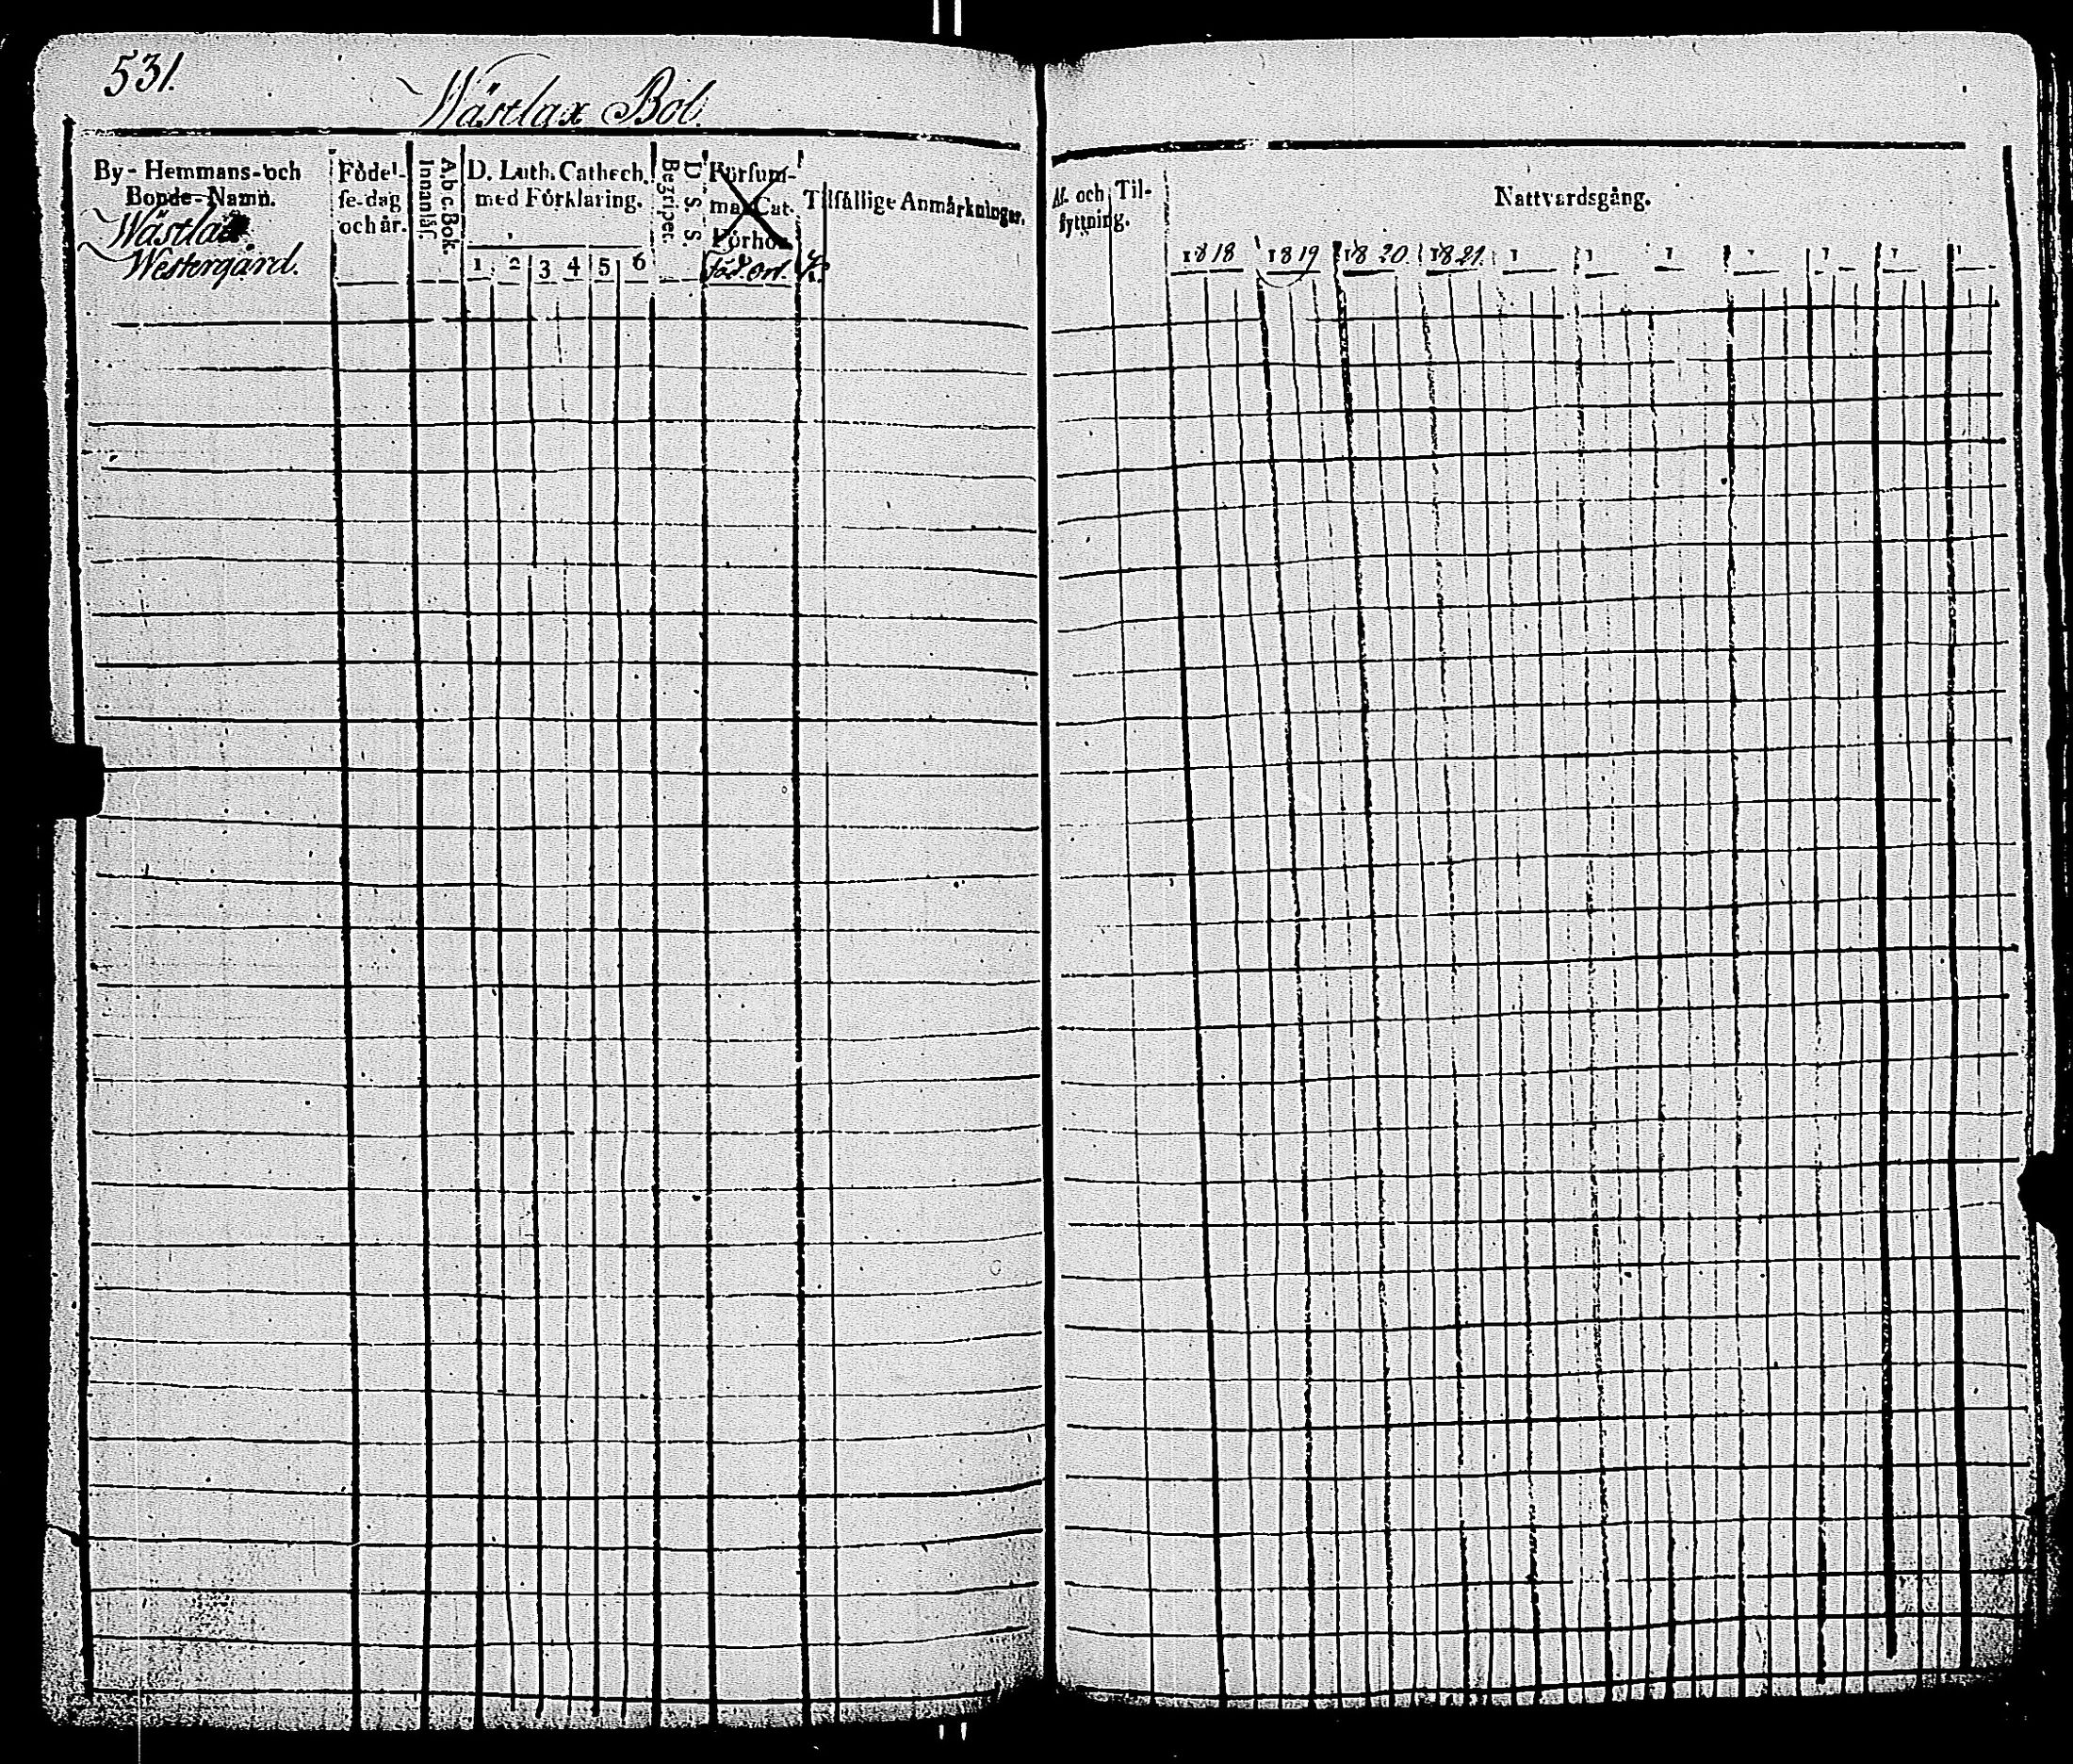 531.
Wästlax Bol.
By-Hemmans-och
Bonde-Namn.
Wästlax
Westergård.
Födel-
se-dag
och år.
A.b.c.Bok.
Innanläs.
D. Luth. Cathech.
med Förklaring.
1 2 3 4 5 6
D. S. S.
Begriper.
Försum-
ma Cat.
Förhör
föd. Ort.
Tillfällige Anmärkningar.
Af- och Til-
flyttning.
Nattvardsgång.
1818 1819 1820 1821. 1 1 1 1 1 1 1